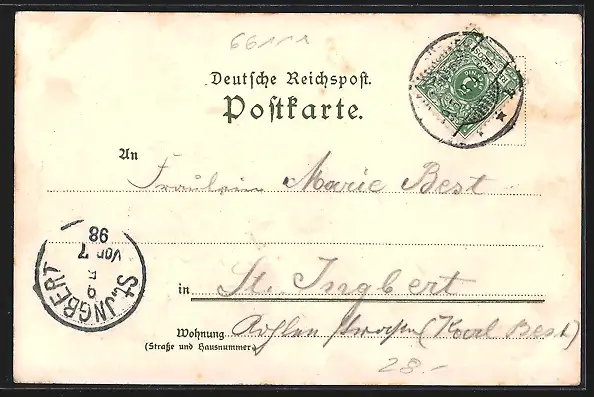 66111
Deutsche Reichspost.
Postkarte.
An
Fräulein Marie Best
St. INGBERT
9 5
Vor 7
98
in St. Ingbert
Wohnung Kohlenstrasse (Karl Best)
(Straße und Hausnummer)
28.-